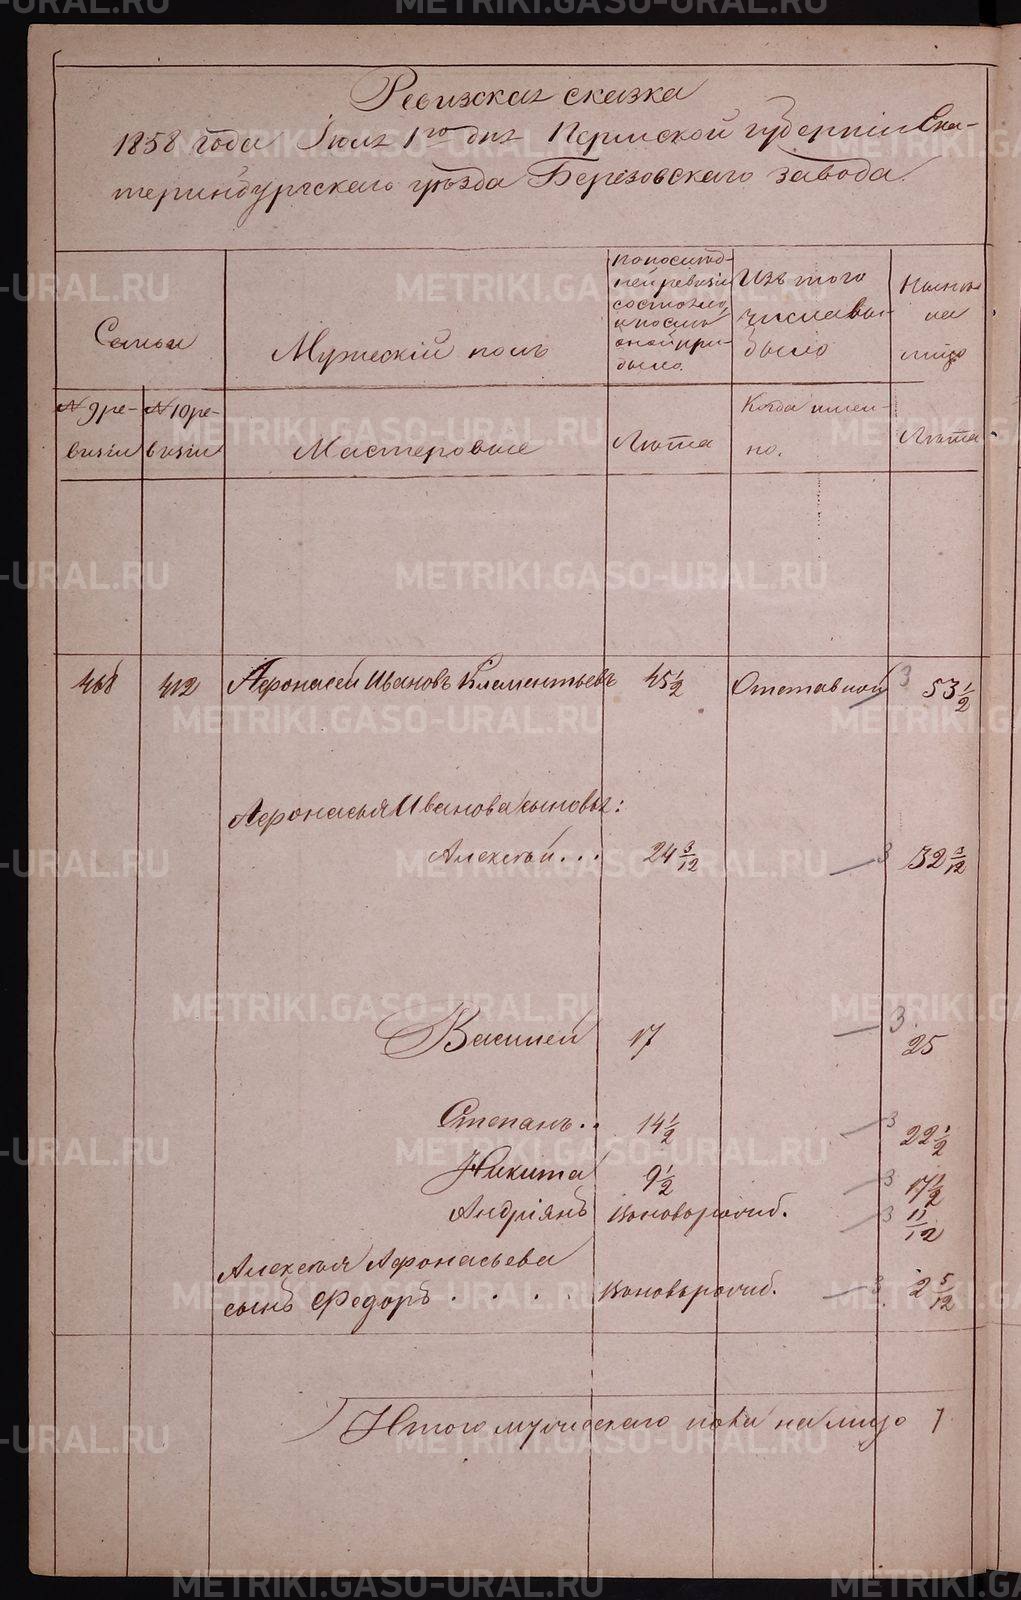 Ревизская сказка
1858 года Іюля 1го дня Пермской губерніи Ека-
теринбургскаго уѣзда Березовскаго завода.
Семьи
Мужескій полъ
По послѣд-
ней ревизіи
состояло
и послѣ
оной при-
было.
Изъ того
числа вы-
было
Нынѣ
на
лицо
№ 9 ре-
визіи
№ 10 ре-
визіи
Мастеровые
Лѣта
Когда имен-
но.
Лѣта
468 412 Афонасей Ивановъ Клементьевъ 45 1/2 Отставной 3 53 1/2
Афонасья Иванова сыновья:
Алексѣй... 24 3/12 3 32 3/12
Василей 17 3 25
Степанъ.. 14 1/2 3 22 1/2
Никита 9 1/2 3 17 1/2
Андріянъ Вноворожд. 3 11/12
Алексѣя Афонасьева
сынъ Федоръ.... Вноворожд. 3 2 5/12
Итого мужескаго пола на лицо 7
METRIKI.GASO-URAL.RU